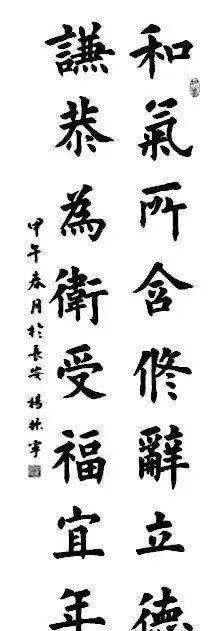 和氣所含修辭立德
謙恭為衛受福宜年
甲午春月於長安楊振宇